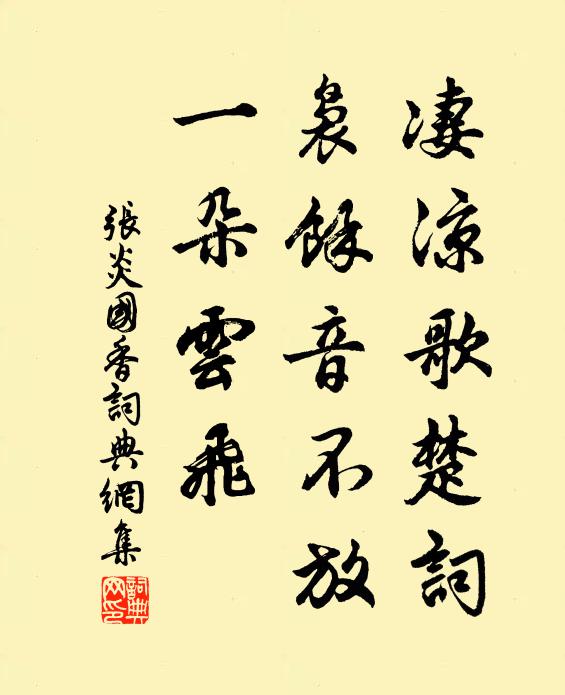 凄涼歌楚詞
裊餘音不放
一朵雲飛
張炎國香詞典網集
詞典网印